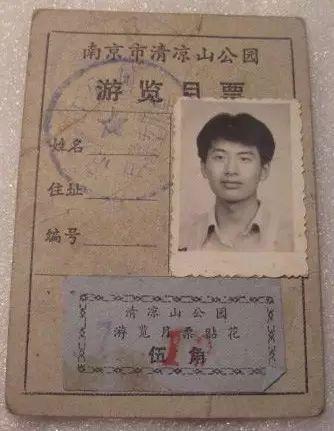 南京市清凉山公园
游览月票
姓名
住址
编号
清凉山公园
游览月票贴花
伍角